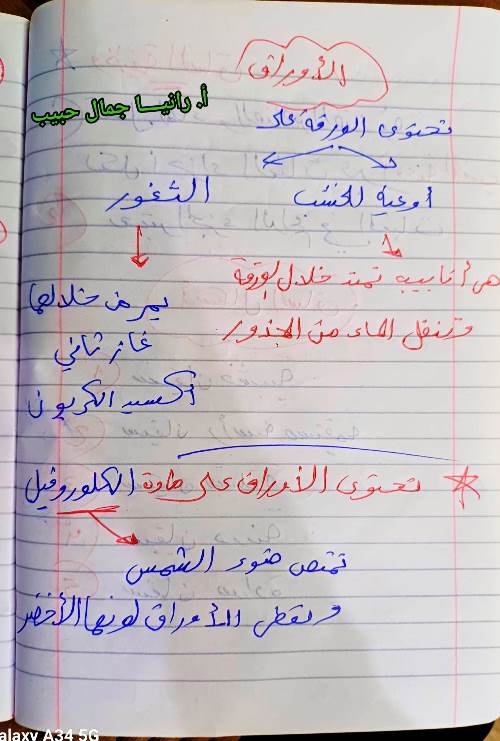 الأوراق
أ. رانيا جمال حبيب
تحتوى الورقة على
أوعية الخشب
الثغور
هى أنابيب تمتد خلال الورقة
وتنقل الماء من الجذور
يمر من خلالها
غاز ثاني
أكسيد الكربون
تحتوى الأوراق على مادة الكلوروفيل
تمتص ضوء الشمس
وتعطى الأوراق لونها الأخضر
alaxy A34 5G